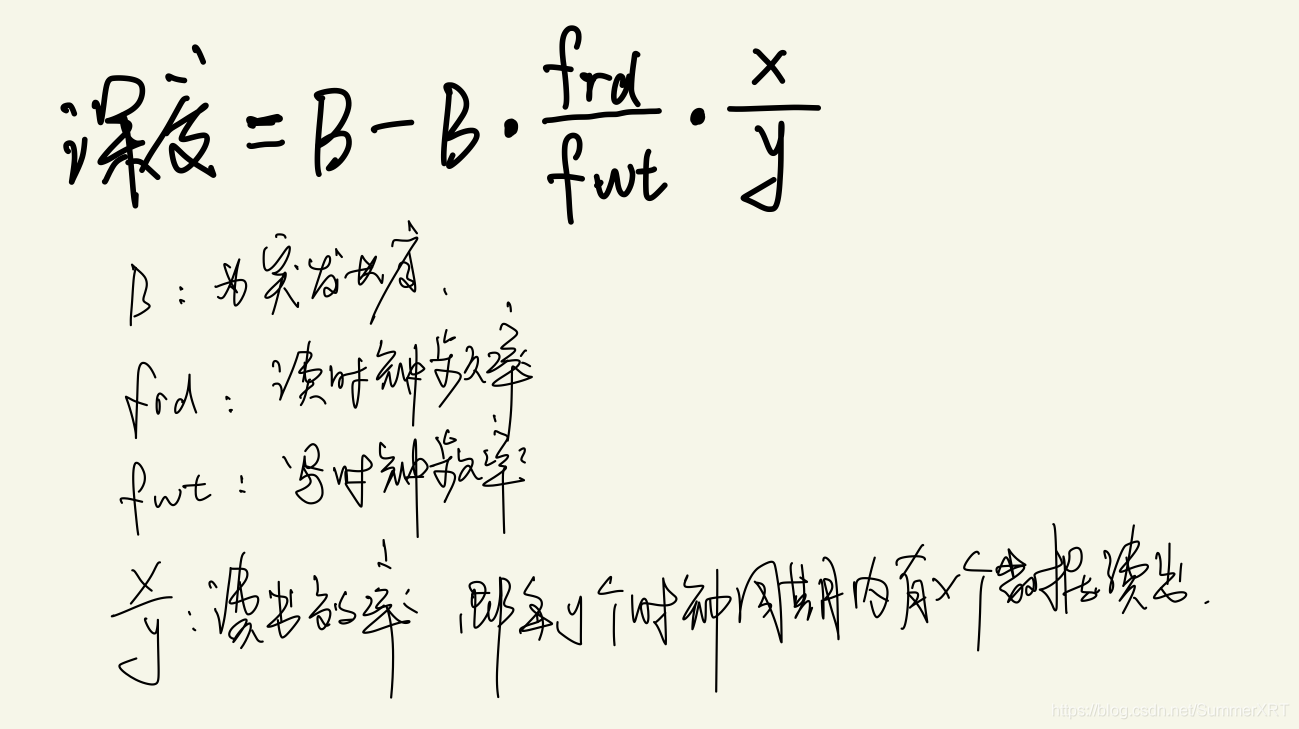 深度 = B - B · frd/fwt · x/y
B : 为突发长度 .
frd : 读时钟频率
fwt : 写时钟频率
x/y : 读出效率 , 即每y个时钟周期内有x个数据读出 .
https://blog.csdn.net/SummerXRT